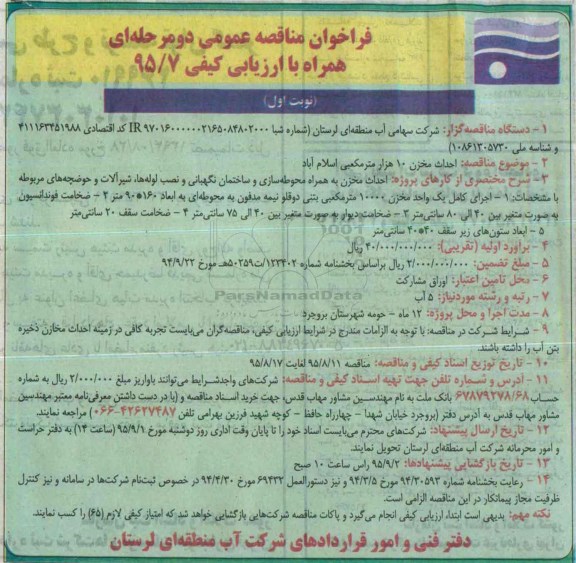 فراخوان مناقصه عمومی دومرحله‌ای
همراه با ارزیابی کیفی ۹۵/۷
(نوبت اول)
۱ - دستگاه مناقصه‌گزار: شرکت سهامی آب منطقه‌ای لرستان (شماره شبا IR ۹۷۰۱۶۰۰۰۰۰۰۲۱۶۵۰۸۴۸۰۲۰۰۰ کد اقتصادی ۴۱۱۱۶۳۴۵۱۹۸۸
و شناسه ملی ۱۰۸۶۱۳۰۵۷۳۰)
۲ - موضوع مناقصه: احداث مخزن ۱۰ هزار مترمکعبی اسلام آباد
۳ - شرح مختصری از کارهای پروژه: احداث مخزن به همراه محوطه‌سازی و ساختمان نگهبانی و نصب لوله‌ها، شیرآلات و حوضچه‌های مربوطه
با مشخصات: ۱ - اجرای کامل یک واحد مخزن ۱۰۰۰۰ مترمکعبی بتنی دوقلو نیمه مدفون به محوطه‌ای به ابعاد ۱۶۰*۹۰ متر ۲ - ضخامت فونداسیون
به صورت متغیر بین ۴۰ الی ۸۰ سانتی‌متر ۳ - ضخامت دیوار به صورت متغیر بین ۴۰ الی ۷۵ سانتی‌متر ۴ - ضخامت سقف ۲۰ سانتی‌متر
۵ - ابعاد ستون‌های زیر سقف ۴۰*۴۰ سانتی‌متر
۴ - برآورد اولیه (تقریبی): ۴۰/۰۰۰/۰۰۰/۰۰۰ ریال
۵ - مبلغ تضمین: ۲/۰۰۰/۰۰۰/۰۰۰ ریال براساس بخشنامه شماره ۱۲۳۴۰۲/ت۵۰۲۵۹هـ مورخ ۹۴/۹/۲۲
۶ - محل تامین اعتبار: اوراق مشارکت
ParsNamadData
۷ - رتبه و رشته موردنیاز: ۵ آب
۸ - مدت اجرا و محل پروژه: ۱۲ ماه - حومه شهرستان بروجرد
۹ - شرایط شرکت در مناقصه: با توجه به الزامات مندرج در شرایط ارزیابی کیفی، مناقصه‌گران می‌بایست تجربه کافی در زمینه احداث مخازن ذخیره
بتن آب را داشته باشند.
۱۰ - تاریخ توزیع اسناد کیفی و مناقصه: مناقصه ۹۵/۸/۱۱ لغایت ۹۵/۸/۱۷
۱۱ - آدرس و شماره تلفن جهت تهیه اسناد کیفی و مناقصه: شرکت‌های واجدشرایط می‌توانند باواریز مبلغ ۲/۰۰۰/۰۰۰ ریال به شماره
حساب ۶۷۸۷۹۲۷۸/۶۸ بانک ملت به نام مهندسین مشاور مهاب قدس، جهت خرید اسناد مناقصه و (با در دست داشتن معرفی‌نامه معتبر مهندسین
مشاور مهاب قدس به آدرس دفتر (بروجرد خیابان شهدا - چهارراه حافظ - کوچه شهید فرزین بهرامی تلفن ۴۲۶۲۷۴۸۷-۰۶۶) مراجعه نمایند.
۱۲ - تاریخ ارسال پیشنهاد: شرکت‌های محترم می‌بایست اسناد خود را تا پایان وقت اداری روز دوشنبه مورخ ۹۵/۹/۱ (ساعت ۱۴) به دفتر حراست
و امور محرمانه شرکت آب منطقه‌ای لرستان تحویل نمایند.
۱۳ - تاریخ بازگشایی پیشنهادها: ۹۵/۹/۲ راس ساعت ۱۰ صبح
۱۴ - رعایت بخشنامه شماره ۹۴/۳۰۵۹۳ مورخ ۹۴/۳/۵ و نیز دستورالعمل ۶۹۴۳۲ مورخ ۹۴/۴/۳۰ در خصوص ثبت‌نام شرکت‌ها در سامانه و نیز کنترل
ظرفیت مجاز پیمانکار در این مناقصه الزامی است.
نکته مهم: بدیهی است ابتدا، ارزیابی کیفی انجام می‌گیرد و پاکات مناقصه شرکت‌هایی بازگشایی خواهد شد که امتیاز کیفی لازم (۶۵) را کسب نمایند.
دفتر فنی و امور قراردادهای شرکت آب منطقه‌ای لرستان